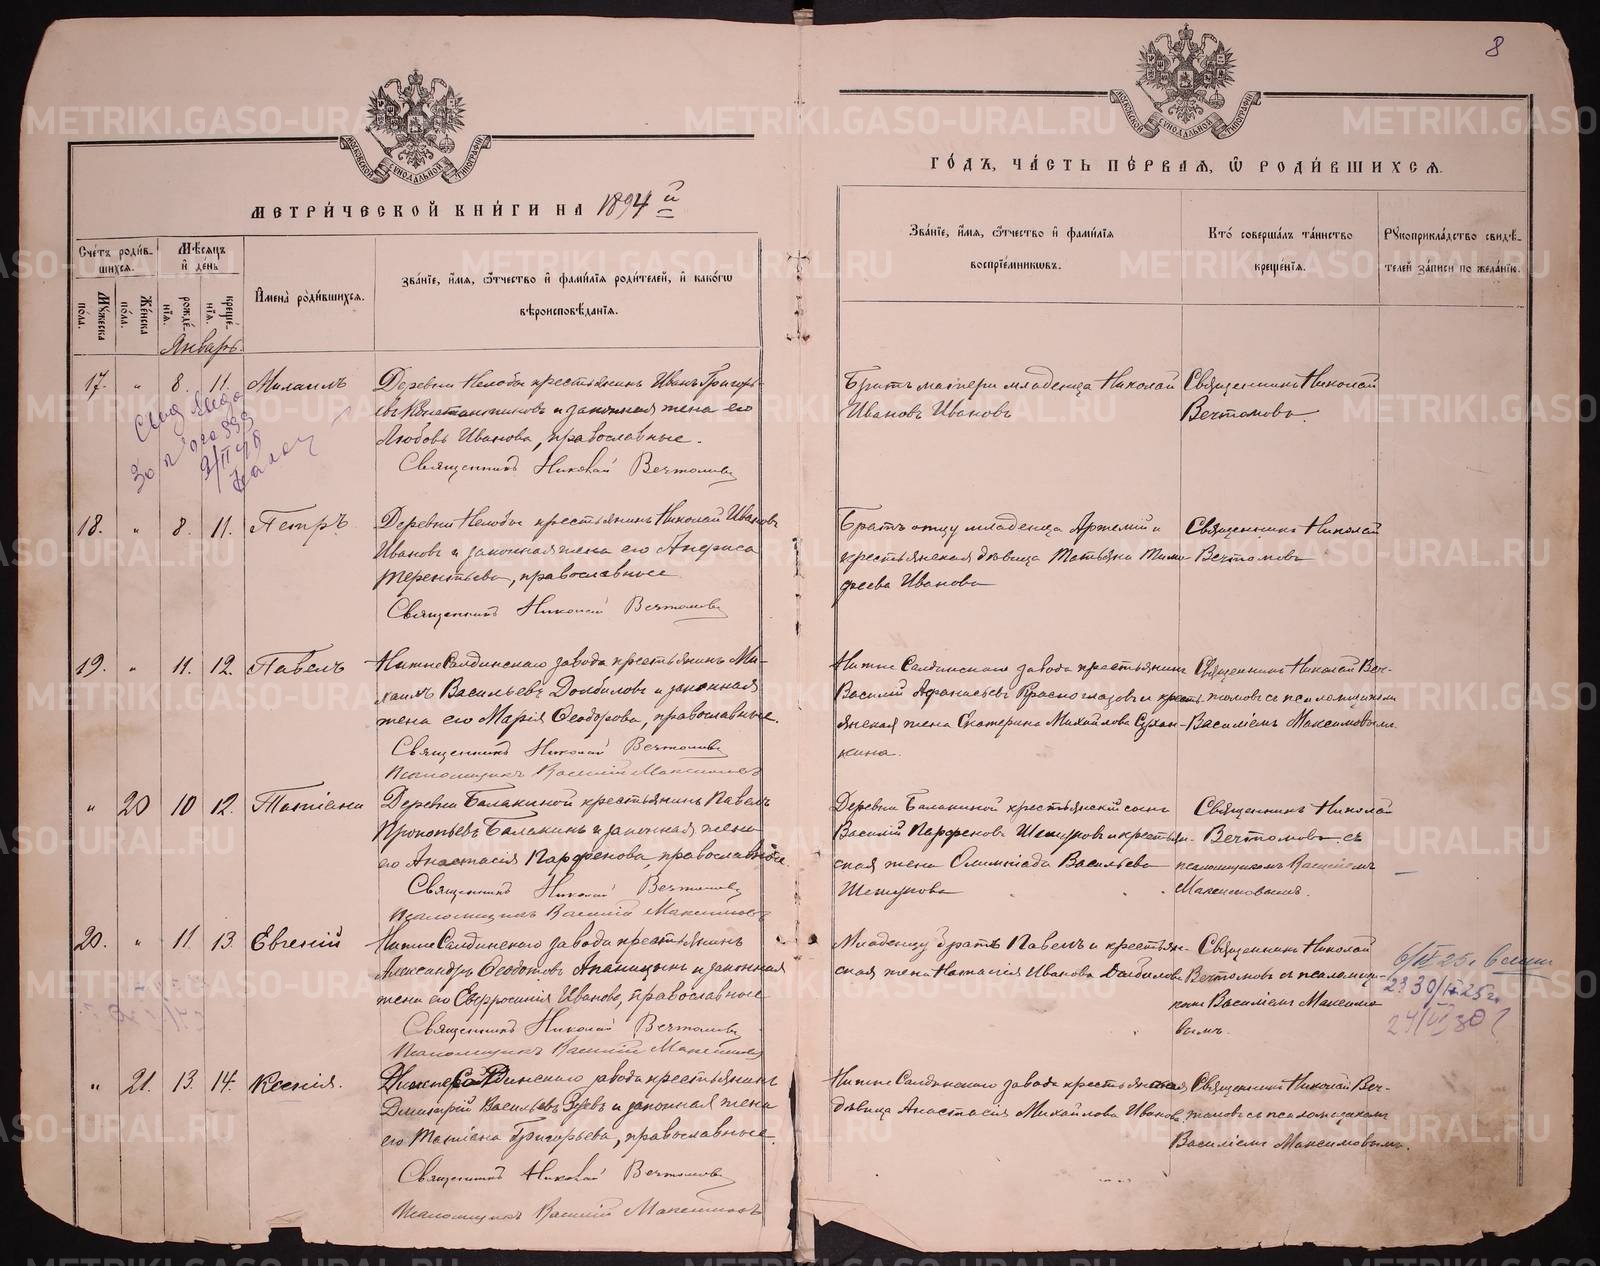 8
МОСКОВСКОЙ СѴНОДАЛЬНОЙ ТИПОГРАФІИ
МОСКОВСКОЙ СѴНОДАЛЬНОЙ ТИПОГРАФІИ
МЕТРИЧЕСКОЙ КНИГИ НА 1894 й
ГОДЪ, ЧАСТЬ ПЕРВАЯ, Ѡ РОДИВШИХСЯ.
Счетъ родив-
шихся.
Мужеска пола.
Женска пола.
Мѣсяцъ и день
рожде-
нія.
креще-
нія.
Имена родившихся.
Званіе, имя, отчество и фамилія родителей, и какогѡ
вѣроисповѣданія.
Званіе, имя, отчество и фамилія
воспріемниковъ.
Кто совершалъ таинство
крещенія.
Рукоприкладство свидѣ-
телей записи по желанію.
Январь.
17. " 8. 11. Михаилъ
Деревни Нелобы крестьянинъ Иванъ Григорь-
евъ Константиновъ и законная жена его
Любовь Иванова, православные.
Священникъ Николай Вечтомовъ
Братъ матери младенца Николай
Ивановъ Ивановъ
Священникъ Николай
Вечтомовъ.
18. " 8. 11. Петръ
Деревни Нелобы крестьянинъ Николай Ивановъ
Ивановъ и законная жена его Анфиса
Терентьева, православные
Священникъ Николай Вечтомовъ
Братъ отцу младенца Артемій и
крестьянская дѣвица Татьяна Тимо-
феева Иванова
Священникъ Николай
Вечтомовъ
19. " 11. 12. Павелъ
Нижне Салдинскаго завода крестьянинъ Ми-
хаилъ Васильевъ Долбиловъ и законная
жена его Марія Ѳеодорова, православные.
Священникъ Николай Вечтомовъ
Псаломщикъ Василій Максимовъ
Нижне Салдинскаго завода крестьянинъ
Василій Афанасьевъ Красноглазовъ и кресть-
янская жена Екатерина Михайлова Сухан-
кина.
Священникъ Николай Веч-
томовъ съ псаломщикомъ
Василіемъ Максимовымъ
" 20 10 12. Татіана
Деревни Балакиной крестьянинъ Павелъ
Прокопьевъ Балакинъ и законная жена
его Анастасія Парфенова, православные
Священникъ Николай Вечтомовъ
Псаломщикъ Василій Максимовъ
Деревни Балакиной крестьянскій сынъ
Василій Парфеновъ Шепуновъ и крестьян-
ская жена Олимпіада Васильева
Священникъ Николай
Вечтомовъ съ
псаломщикомъ Василіемъ
Максимовымъ.
20. " 11. 13. Евгеній
Нижне Салдинскаго завода крестьянинъ
Александръ Ѳеодотовъ и законная
жена его Евфросинія Иванова, православные
Священникъ Николай Вечтомовъ
Псаломщикъ Василій Максимовъ
Младенцу братъ Павелъ и крестьян-
ская жена Наталія Иванова Долбилова
Священникъ Николай
Вечтомовъ съ псаломщи-
комъ Василіемъ Максимо-
вымъ.
" 21. 13. 14. Ксенія.
Нижне Салдинскаго завода крестьянинъ
Дмитрій Васильевъ и законная жена
его Татіана Григорьева, православные.
Священникъ Николай Вечтомовъ
Псаломщикъ Василій Максимовъ
Нижне Салдинскаго завода крестьянская
дѣвица Анастасія Михайлова Иванова.
Священникъ Николай Веч-
томовъ съ псаломщикомъ
Василіемъ Максимовымъ.